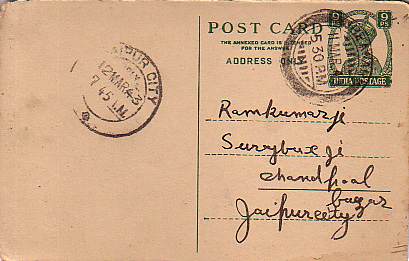 POST CARD
THE ANNEXED CARD IS INTENDED
FOR THE ANSWER
ADDRESS ONLY
9 PS
9 PS
INDIA POSTAGE
5.30 P.M.
MAR
JAIPUR CITY
12 MAR 43
7.45 A.M.
Ramkumarji
Surrybux Ji
Chandpoal
bazar
Jaipurcity